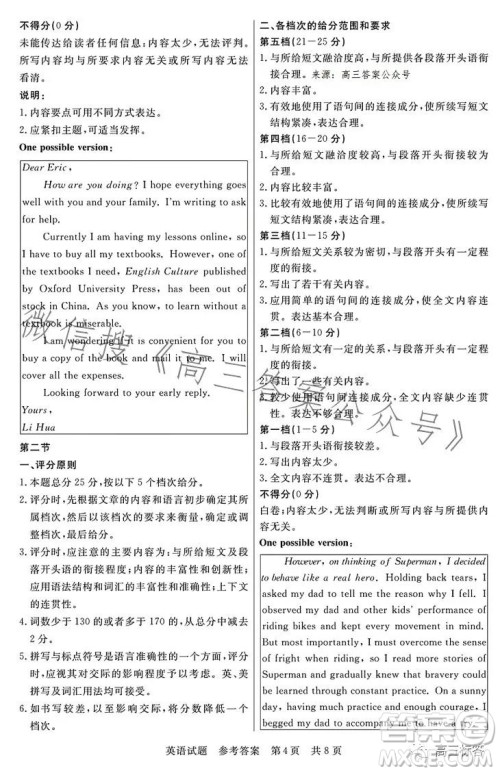 不得分(0 分)
未能传达给读者任何信息;内容太少,无法评判。
所写内容均与所要求内容无关或所写内容无法
看清。
说明:
1. 内容要点可用不同方式表达。
2. 应紧扣主题,可适当发挥。
One possible version:
Dear Eric,
How are you doing? I hope everything goes
well with you and your family. I'm writing to ask
for help.
Currently I am having my lessons online, so
I have to buy all my textbooks. However, one of
the textbooks I need, English Culture published
by Oxford University Press, has been out of
stock in China. As you know, learning without a
textbook is miserable.
I am wondering if it is convenient for you to
buy a copy of the book and mail it to me. I will
cover all the expenses.
Looking forward to your early reply.
Yours,
Li Hua
第二节
一、评分原则
1. 本题总分 25 分,按以下 5 个档次给分。
2. 评分时,先根据文章的内容和语言初步确定其所
属档次,然后以该档次的要求来衡量,确定或调
整档次,最后给分。
3. 评分时,应注意的主要内容为:与所给短文及段
落开头语的衔接程度;内容的丰富性和创新性;
应用语法结构和词汇的丰富性和准确性;上下文
的连贯性。
4. 词数少于 130 的或者多于 170 的,从总分中减去
2 分。
5. 拼写与标点符号是语言准确性的一个方面,评分
时,应视其对交际的影响程度予以考虑。英、美
拼写及词汇用法均可接受。
6. 如书写较差,以至影响交际,将分数降低一个
档次。
二、各档次的给分范围和要求
第五档(21-25 分)
1. 与所给短文融洽度高,与所提供各段落开头语衔
接合理。来源:高三答案公众号
2. 内容丰富。
3. 有效地使用了语句间的连接成分,使所续写短文
结构紧凑。
第四档(16-20 分)
1. 与所给短文融洽度较高,与段落开头衔接较为
合理。
2. 内容比较丰富。
3. 比较有效地使用了语句间的连接成分,使所续写
短文结构紧凑。
第三档(11-15 分)
1. 与所给短文关系较为密切,与段落开头有一定程
度的衔接。
2. 写出了若干有关内容。
3. 应用简单的语句间的连接成分,使全文内容连
贯。表达基本合理。
第二档(6-10 分)
1. 与所给短文有一定的关系,与段落开头有一定程
度的衔接。
2. 写出了一些有关内容。
3. 较少使用语句间的连接成分,全文内容缺少连贯
性。表达不够合理。
第一档(1-5 分)
1. 与段落开头语衔接较差。
2. 写出内容太少。
3. 缺乏语句间的连接成分,全文内容不连贯。
不得分(0 分)
白卷;内容太少,无法判断或所写内容与所提供内
容无关。
One possible version:
However, on thinking of Superman, I decided
to behave like a real hero. Holding back tears, I
asked my dad to tell me the reason why I fell. I
observed my dad and other kids' performance of
riding bikes and kept every movement in mind.
But most importantly, I must overcome the sense
of fright when riding, as all great stories of
Superman and gradually knew that balance would
be improved through constant practice. On a sunny
day, having gained enough courage, I
begged my dad to accompany me to have a try.
英语试题 参考答案 第 4 页 共 8 页
微信搜《高三答案公众号》